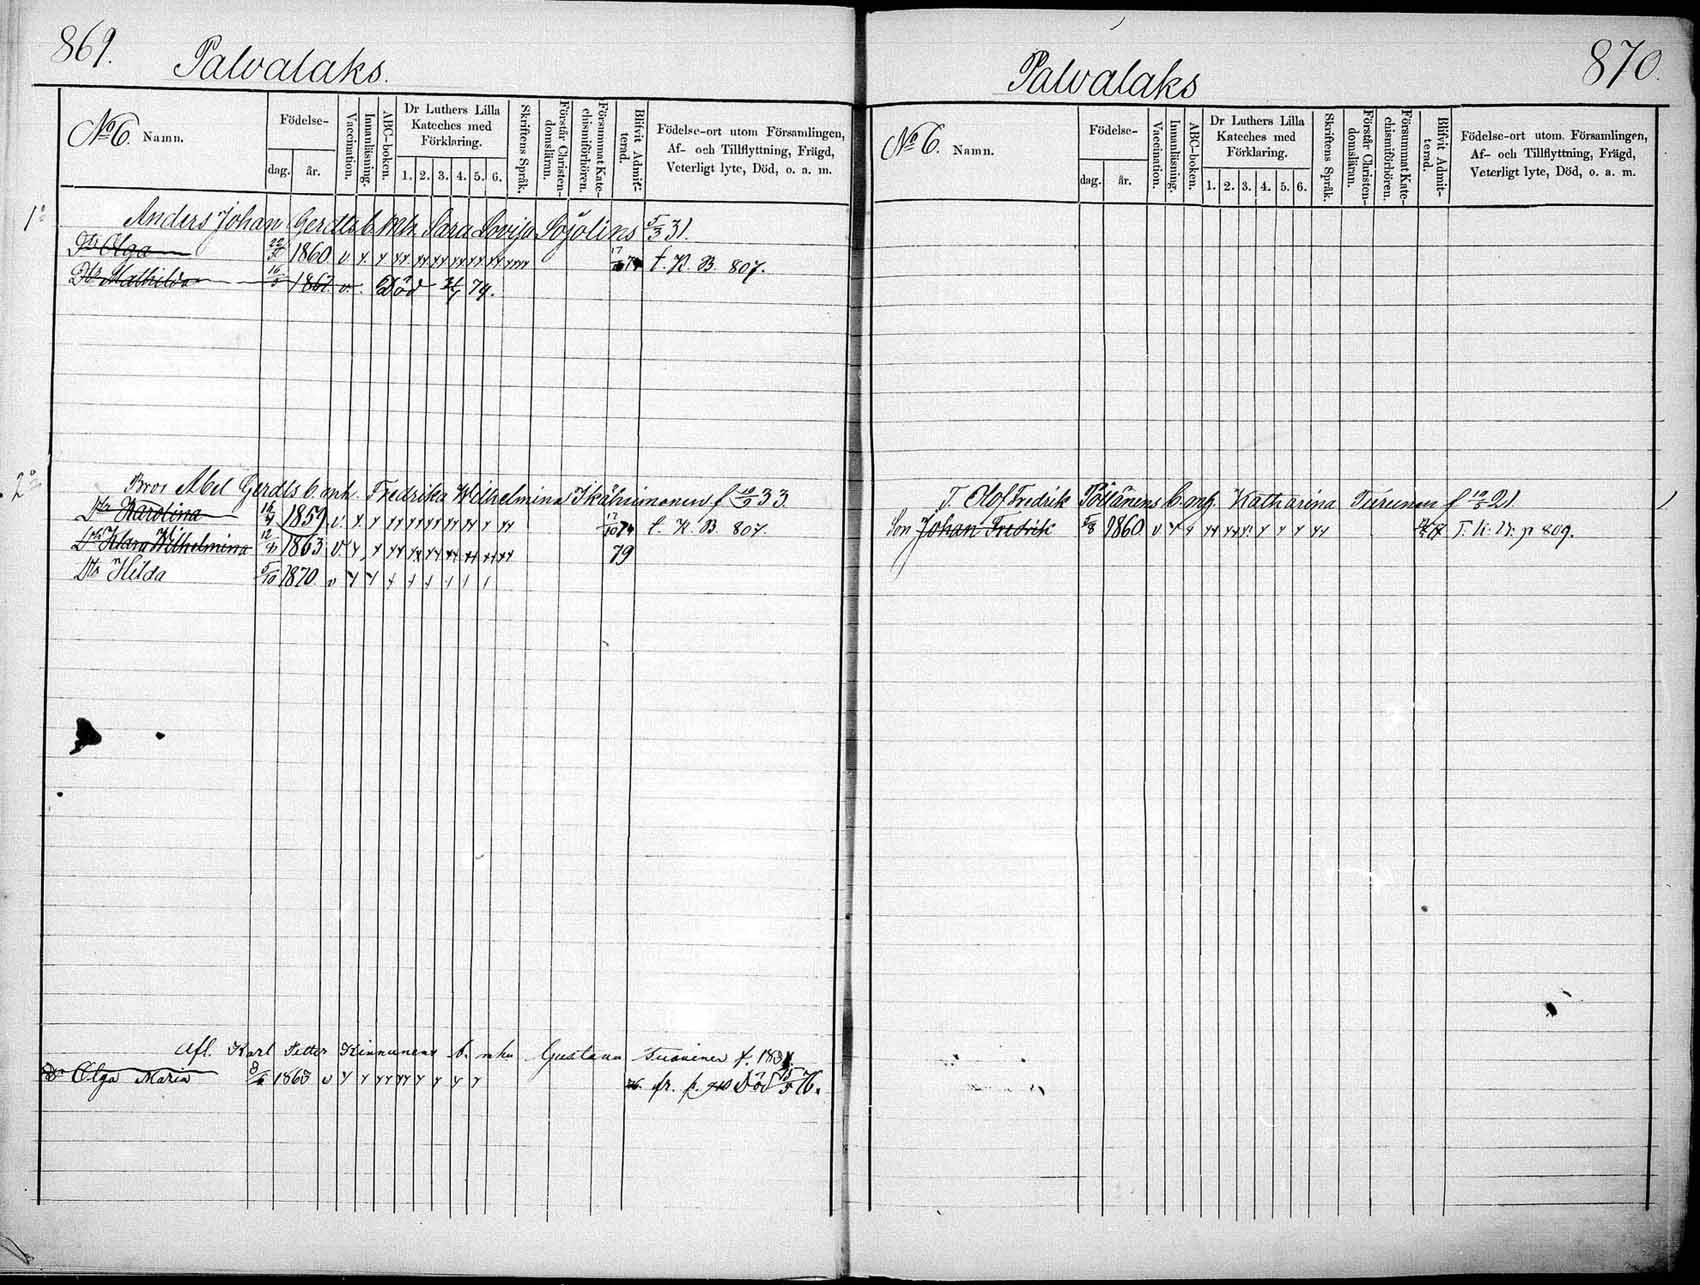 869.
Palvalaks.
No 6. Namn.
Födelse-
dag.
år.
Vaccination.
Innanläsning.
ABC-boken.
Dr Luthers Lilla
Kateches med
Förklaring.
1. 2. 3. 4. 5. 6.
Skriftens Språk.
Förstår Christen-
domslänn.
Försummat Kate-
chismiförhören.
Blifvit Admit-
terad.
Födelse-ort utom Församlingen,
Af- och Tillflyttning, Frägd,
Veterligt lyte, Död, o. a. m.
1o Anders Johan Gerdts b. mh. Sara Lovisa Sojolins 5/3 31.
Dtr Olga 1860 v t. K. B. 807.
Dtr Mathilda 1867. v. Död 79.
2o Bror Abel Gerdts b. mh. Fredrika Wilhelmina Ikäheimonen f 33
Dtr Karolina 1859 v. t. K. B 807.
Dtr Klara Wilhelmina 1863 v 79
Dtr Hilda 5/10 1870. v
Afl. Karl Petter Kinnunens b. mhu Gustava f. 183
Dr Olga Maria 1863 v fr. p. Död 76.
870.
Palvalaks
No 6. Namn.
Födelse-
dag.
år.
Vaccination.
Innanläsning.
ABC-boken.
Dr Luthers Lilla
Kateches med
Förklaring.
1. 2. 3. 4. 5. 6.
Skriftens Språk.
Förstår Christen-
domsläran.
Försummat Kate-
chismiförhören.
Blifvit Admit-
terad.
Födelse-ort utom. Församlingen,
Af- och Tillflyttning, Frägd,
Veterligt lyte, Död, o. a. m.
T. Olof Fredrik Pöllänens b. mh. Katharina Tiirunen f 21.
Son Johan Fredrik 1860 v T. K. B. p 809.